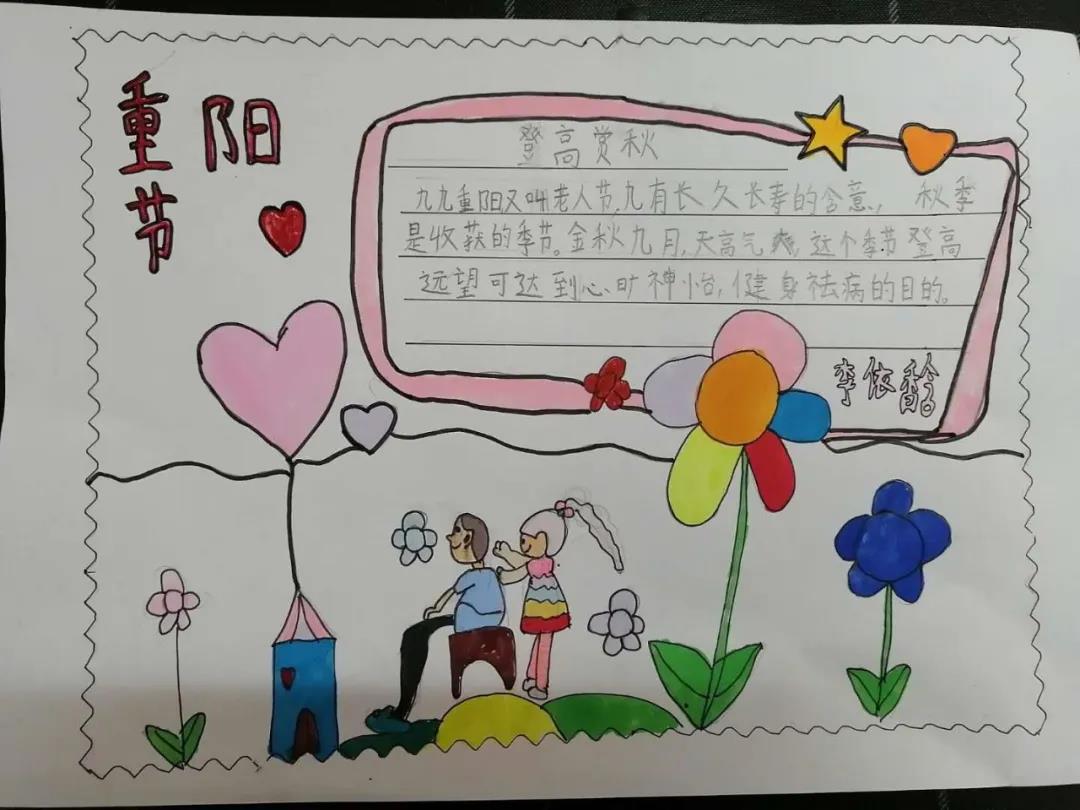 重阳
节
登高赏秋
九九重阳又叫老人节,九有长久长寿的含意,秋季
是收获的季节。金秋九月,天高气爽,这个季节登高
远望可达到心旷神怡,健身祛病的目的。
李依